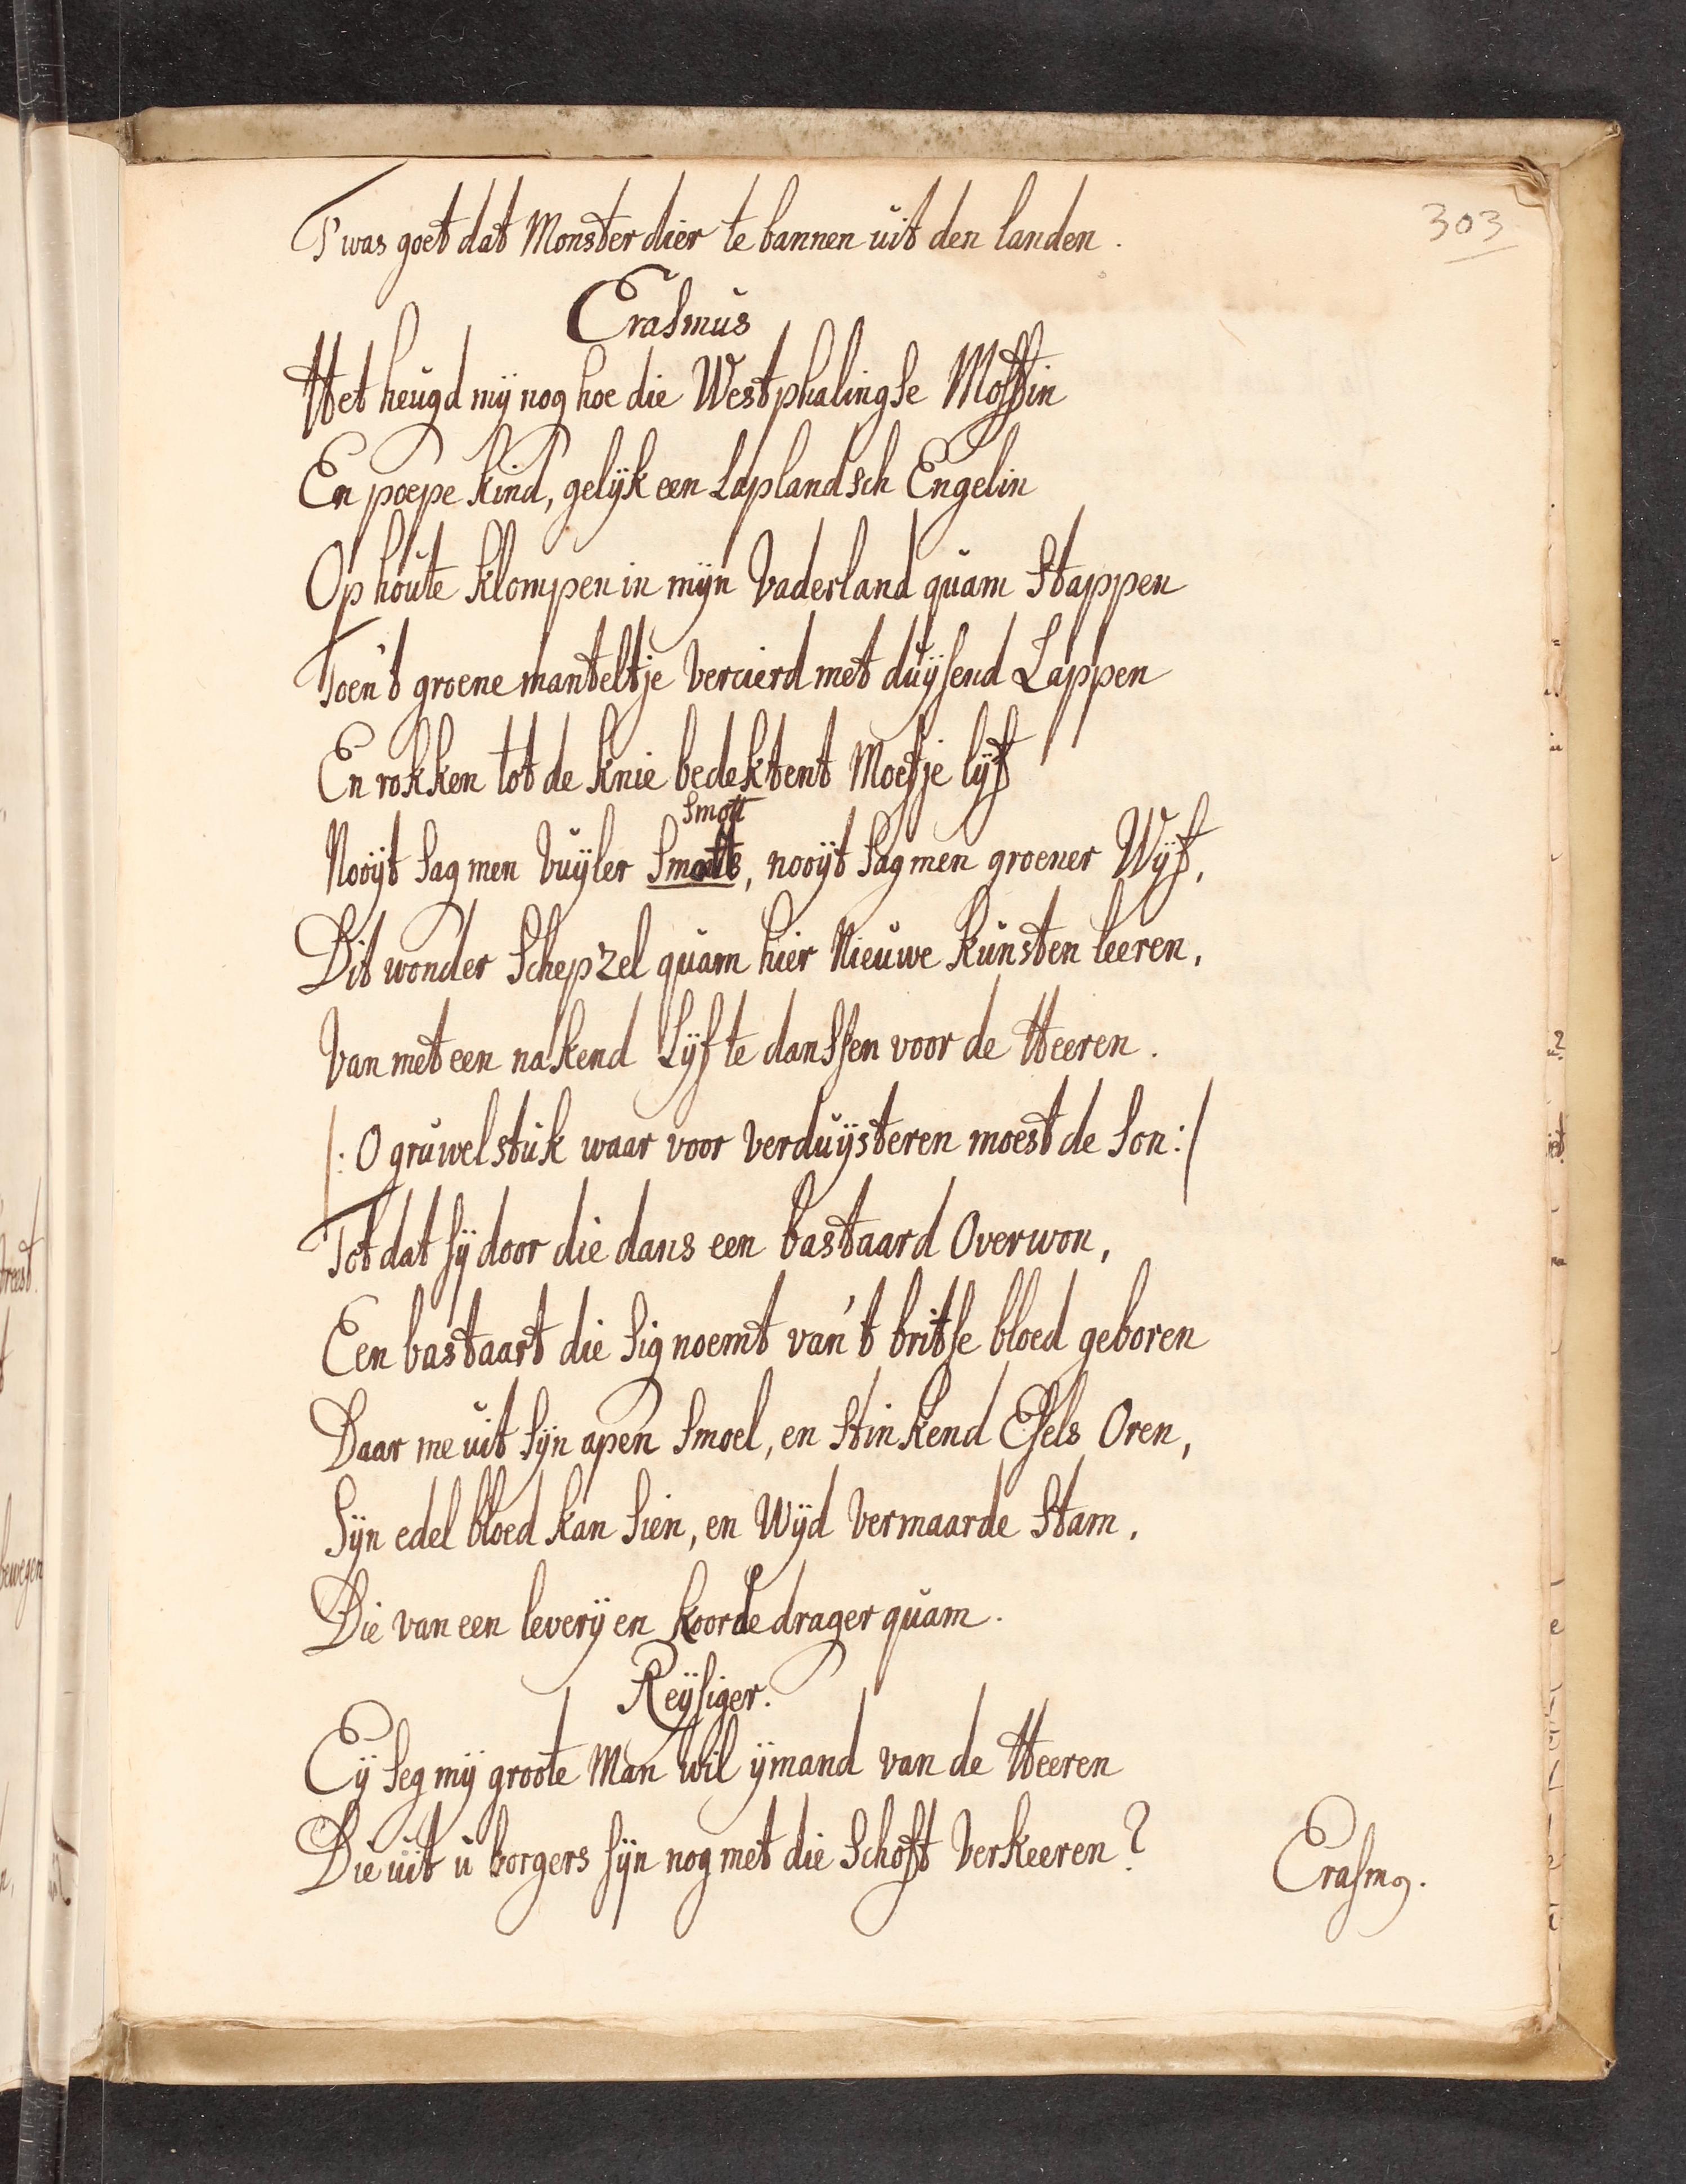 303
T'was goet dat Monster dier te bannen uit den landen.
Erasmus
Het heugd mij nog hoe die Westphalingse Moffin
En poepe kind, gelijk een Laplandsch Engelin
Op houte klompen in mijn Vaderland quam stappen
Toen't groene manteltje vercierd met duijsend Lappen
En rokken tot de knie bedektent Moefje lijf
Smots
Nooijt sag men vuijler, nooijt sag men groener Wijf,
Dit wonder schepzel quam hier Nieuwe kunsten leeren,
Van met een nakend Lijf te danssen voor de Heeren.
/: O gruwelstuk waar voor verduijsteren moest de son:/
Tot dat sij door die dans een bastaard Overwon,
Een bastaart die sig noemt van't britse bloed geboren
Daar me uit sijn apen smoel, en stinkend Esels Oren,
Sijn edel bloed kan sien, en Wijd vermaarde stam,
Die van een leverij en koorde drager quam.
Reijsiger.
Eij seg mij groote Man wil ijmand van de Heeren
Die uit u borgers sijn nog met die schoft verkeeren?
Erasmꝰ.